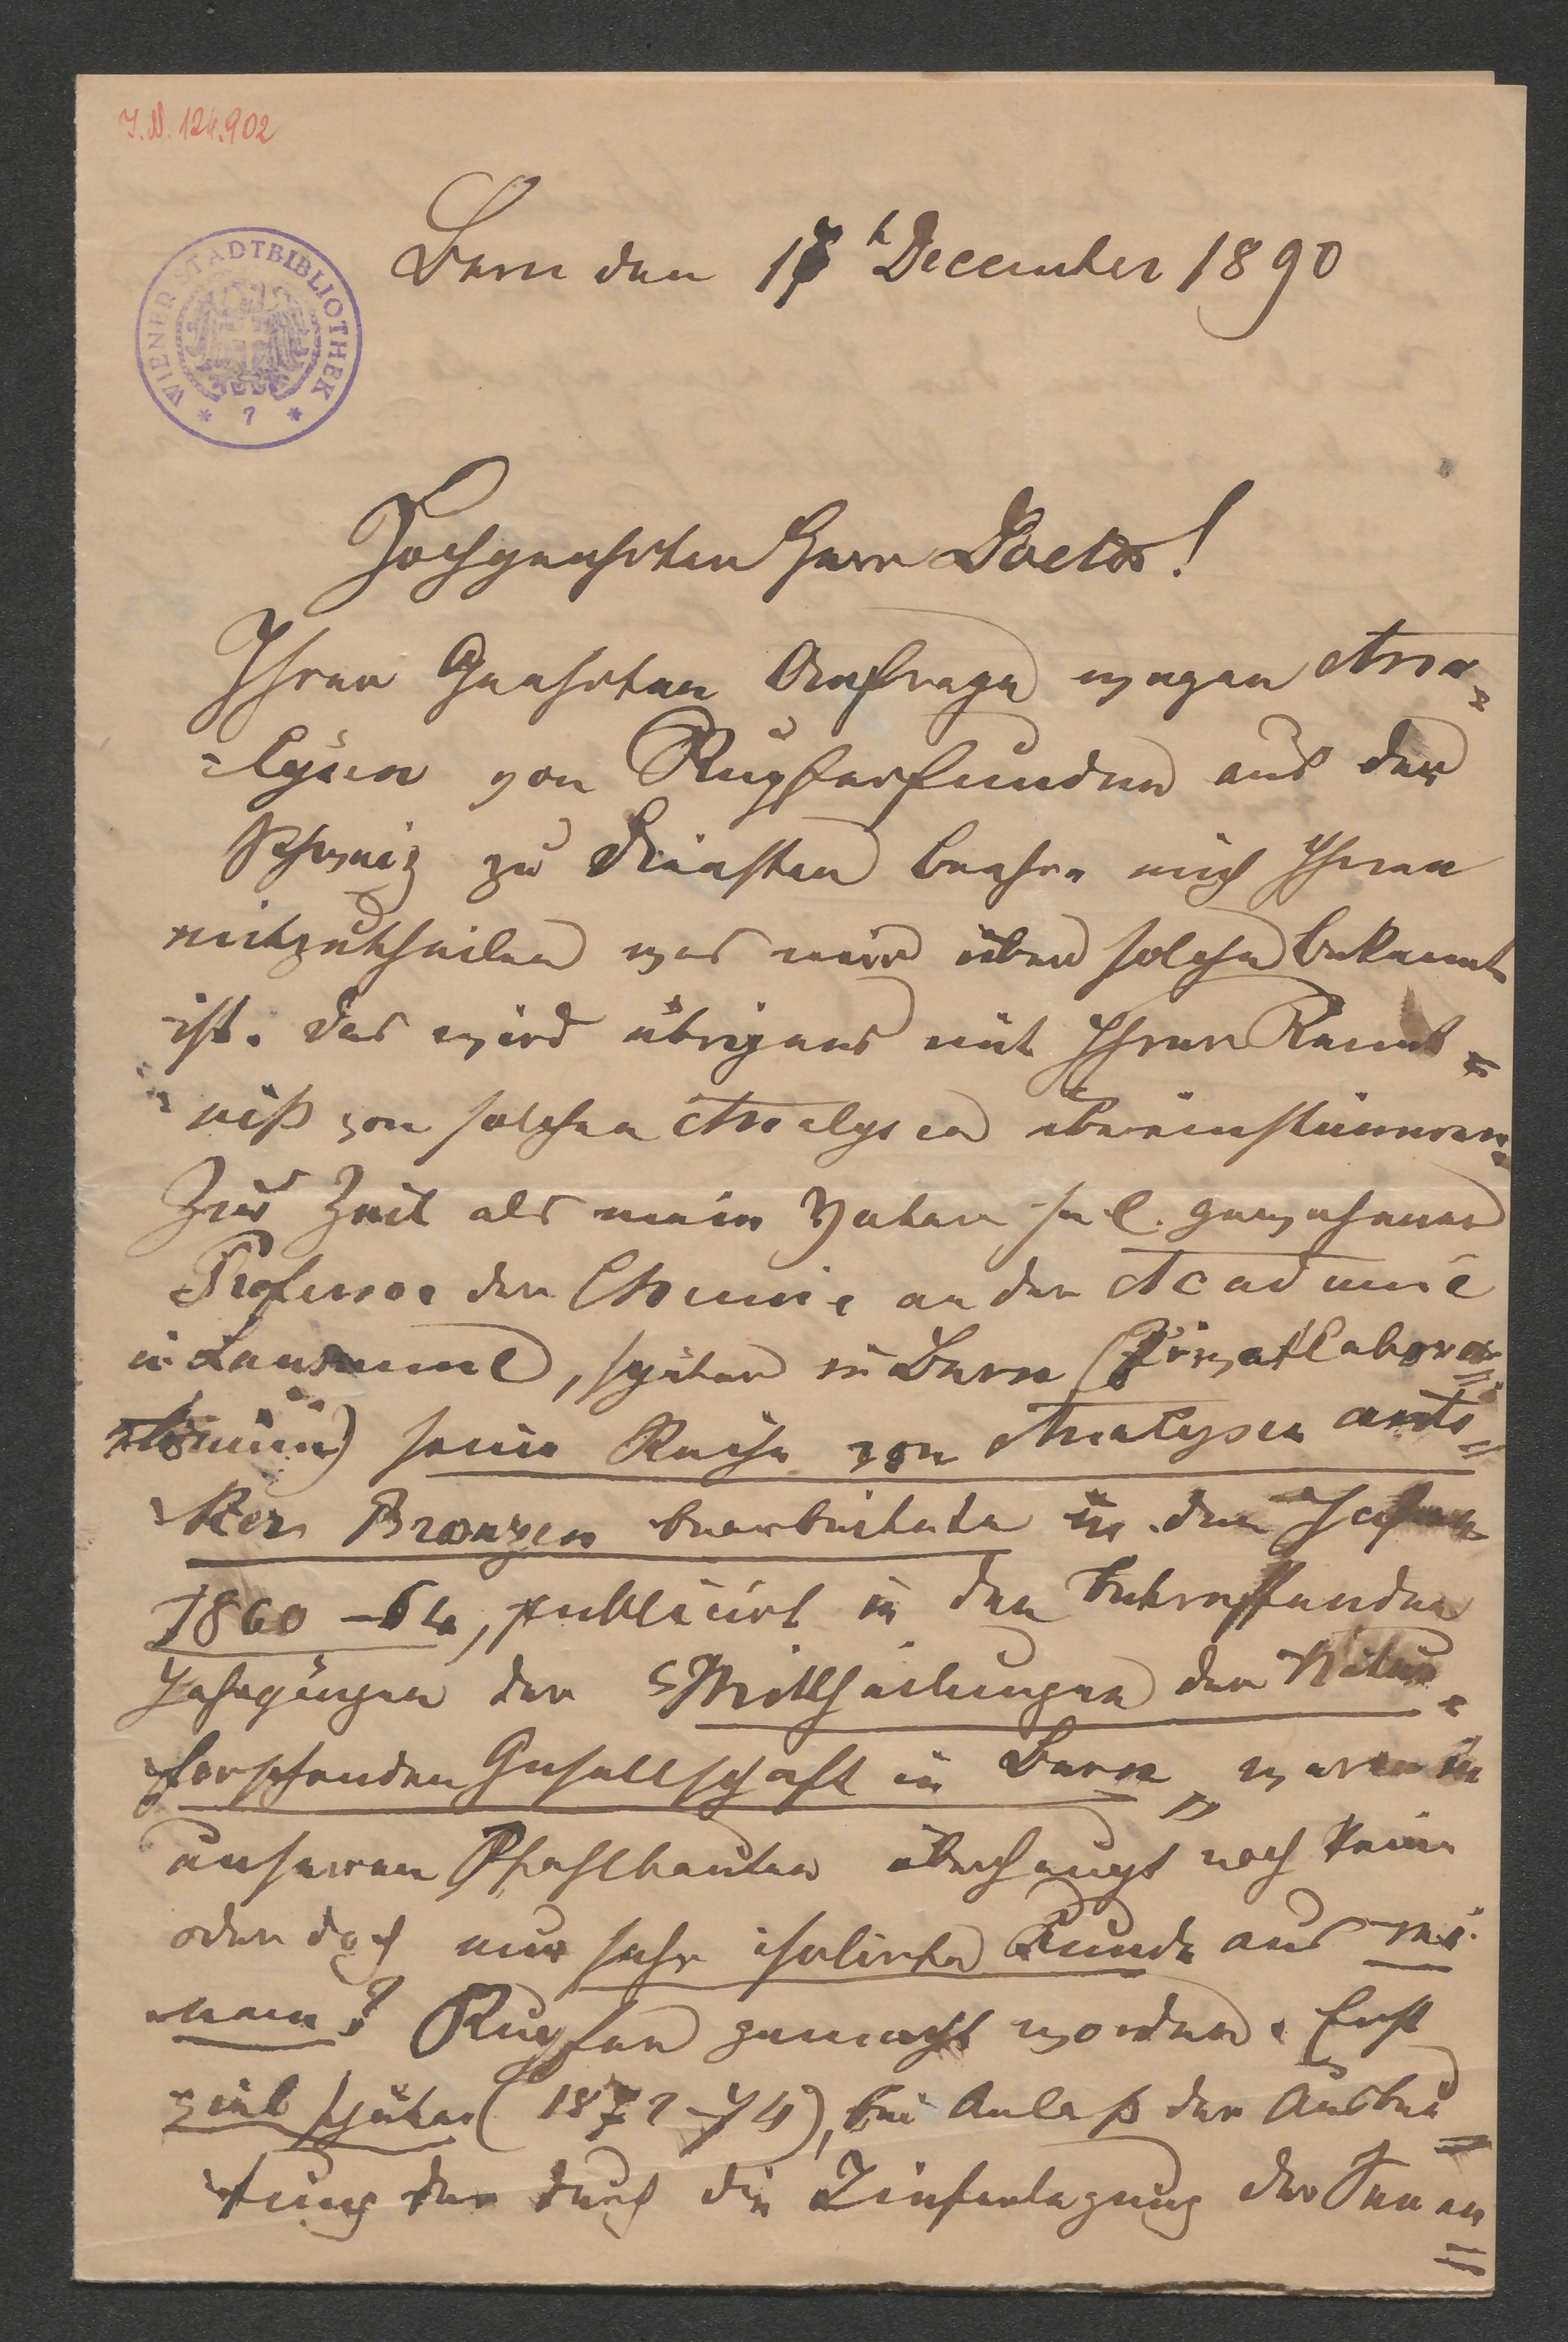 I.N. 124.902
WIENER STADTBIBLIOTHEK
* 7 *
Bern den 17t December 1890
Hochgeehrter Herr Doctor!
Ihrer Geehrten Anfrage wegen Ana=
=lysen von Kupferfunden aus der
Schweiz zu Diensten beehre mich Ihnen
mitzutheilen was mir über solche bekannt
ist. Das wird übrigens mit Ihrer Kennt=
=niß von solchen Analysen übereinstimmen.
Zur Zeit als mein Vater sel. gewesener
Professor der Chemie an der Academie
in Lausanne, später in Bern (Privatlabora=
=torium) seine Reihe von Analysen anti=
=ker Bronzen bearbeitete in den Jahren
1860–64, publicirt in den betreffenden
Jahrgängen der Mittheilungen der Natur=
=forschenden Gesellschaft in Bern, waren in
unseren Pfahlbauten überhaupt noch keine
oder doch nur sehr isolirte Funde aus rei
=nem? Kupfer gemacht worden. Erst
viel später (1872–74), bei Anlaß der Ausbeu
=tung der durch die Tieferlegung der Seeen